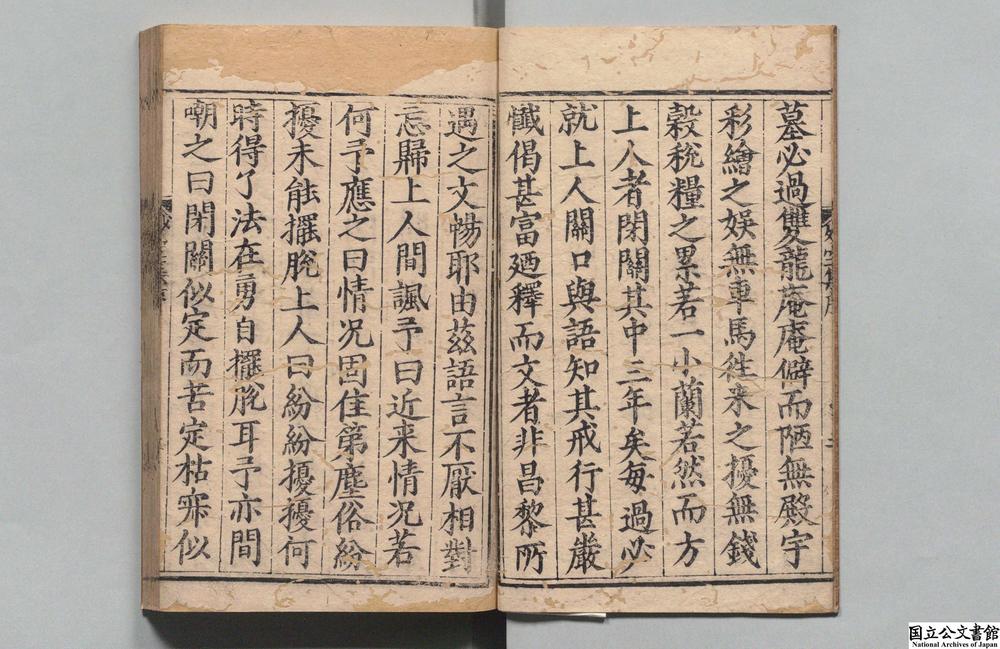 墓必過雙龍菴庵僻而陋無殿宇
彩繪之娛無車馬徃来之擾無錢
穀稅糧之累若一小蘭若然而方
上人者閉關其中三年矣每過必
就上人關口與語知其戒行甚嚴
懺偈甚富廼釋而文者非昌黎所
遇之文暢耶由茲語言不厭相對
忘歸上人間諷予曰近来情况若
何予應之曰情况固佳第塵俗紛
擾未能擺脫上人曰紛紛擾擾何
時得了法在勇自擺脫耳予亦間
嘲之曰閉關似定而苦定枯寂似
国立公文書館
National Archives of Japan